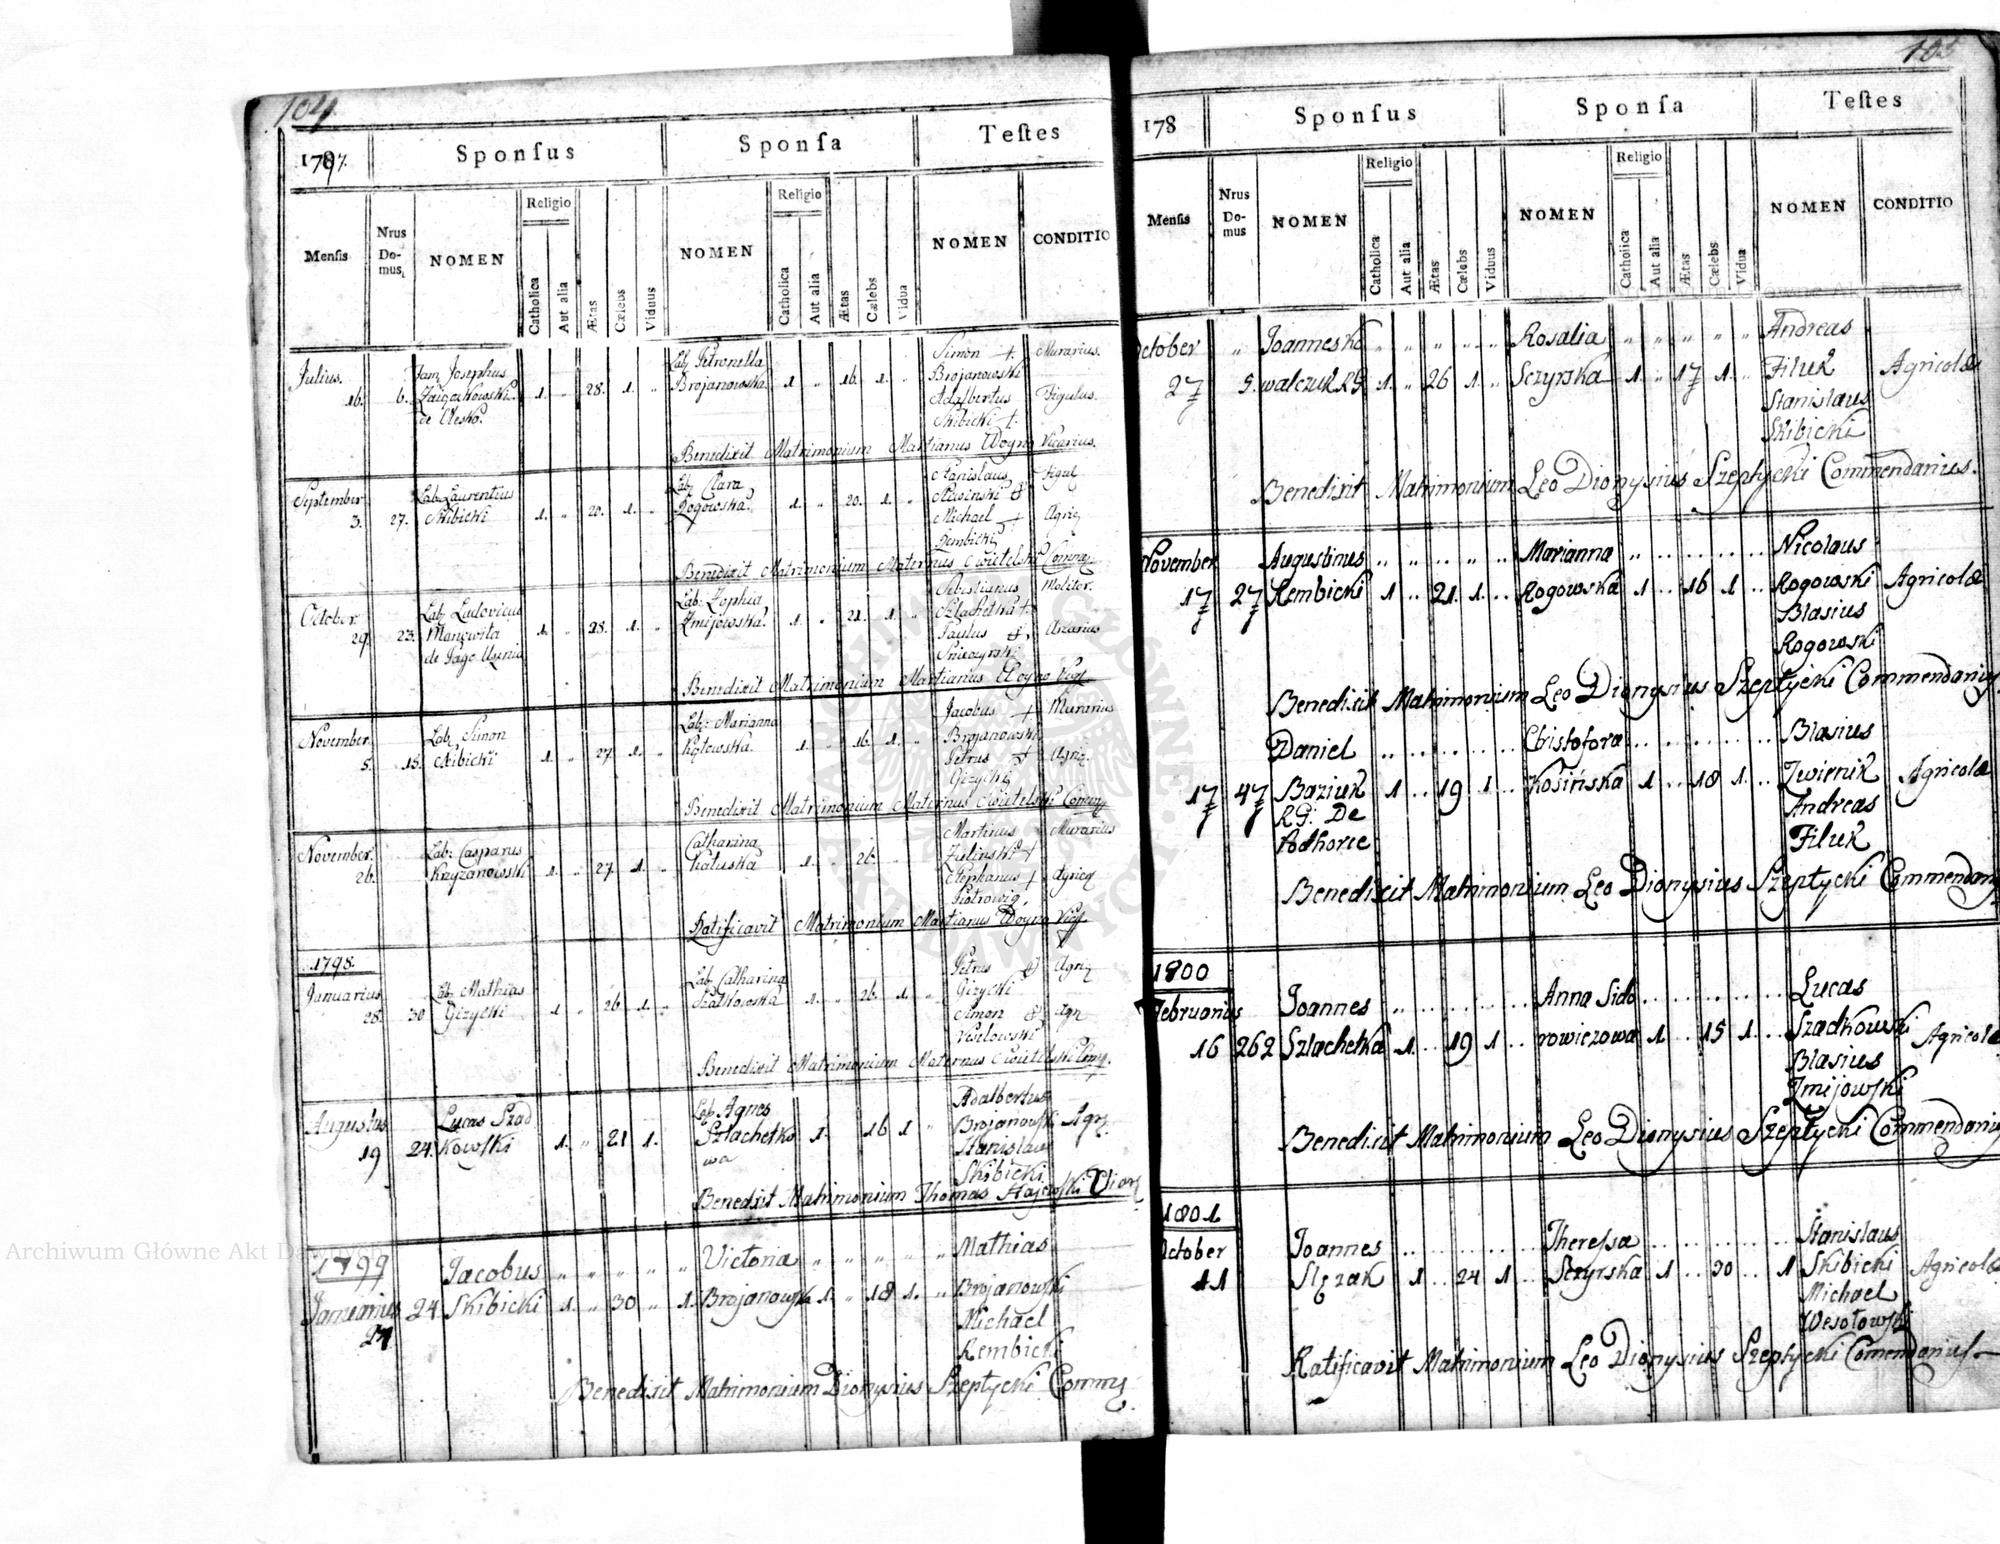 104
1797.
Sponſus
Sponſa
Teſtes
Menſis
Nrus Do-mus
NOMEN
Religio
Catholica
Aut alia
Ætas
Cælebs
Viduus
NOMEN
Religio
Catholica
Aut alia
Ætas
Cælebs
Vidua
NOMEN
CONDITIO
Julius. Josephus Lab. Petronella Simon + Murarius.
16. 6. 1. " 28. 1. " Brojanowska. 1 " 16. 1. " Brojanowski
de Olesko. Adalbertus Figulus.
Skibicki +.
Benedixit Matrimonium Martianus Woyno Vicarius.
September Lab. Laurentius Lab. Clara Stanislaus Figul
3. 27. Skibicki 1. " 20. 1. " Rogowska. 1. " 20. 1. "
Michael + Agric
Rembicki
Benedixit Matrimonium Maternus
October Lab. Ludovicus Lab. Zophia Sebastianus Molitor.
29. 23. 1. " 28. 1. " Żmijowska. 1. " 21. 1. " Szlachetka +.
de Pago Paulus
Benedixit Matrimonium Martianus Woyno
November. Lab. Simon Lab: Marianna Jacobus + Murarius
5. 15. Skibicki 1. " 27. 1. " 1. " 16. 1. " Brojanowski
Petrus + Agric.
Gizycki
Benedixit Matrimonium Maternus
November. Lab: Casparus Catharina Martinus Murarius
26. Krzyzanowski 1. " 27. 1. " Kaluska 1. " 26. Zulinski +
Stephanus + Agric
Ratificavit Matrimonium Martianus Woyno
1798.
Januarius Lab. Mathias Lab. Catharina Petrus Agric
28. 30 Gizycki 1 " 26. 1. " Szatkowska 1. " 26. 1. " Gizycki
Simon Agr
Benedixit Matrimonium Maternus
Augustus Lucas Szad Lab. Agnes Adalbertus
19 24. Kowſki 1. " 21 1. Szlachetko 1. 16 1 " Brojanowſki Agr.
wa Stanislaus
Skibicki
Benedixit Matrimonium Thomas
1799 Jacobus " " " " " Victoria " " " " " Mathias
Januarius 24. Skibicki 1. " 30 " 1. Brojanowska 1. " 18 1. " Brojanowſki
Michael
Rembicki
Benedixit Matrimonium Dionysius Szeptycki
105
178
Sponſus
Sponſa
Teſtes
Menſis
Nrus Do-mus
NOMEN
Religio
Catholica
Aut alia
Ætas
Cælebs
Viduus
NOMEN
Religio
Catholica
Aut alia
Ætas
Cælebs
Vidua
NOMEN
CONDITIO
October " Joannes Ko " " " " " Rosalia " " " " " Andreas
27 5. walczuk RG 1. " 26 1. " Sczyrska 1. " 17 1. " Filuk Agricolæ
Stanislaus
Skibicki
Benedixit Matrimonium Leo Dionysius Szeptycki Commendarius.
November Augustinus .. " .. " .. Marianna " .. .. .. .. Nicolaus
17 27 Rembicki 1 .. 21. 1. .. Rogowska 1 .. 16 1 .. Rogowski Agricolæ
Blasius
Rogowski
Benedixit Matrimonium Leo Dionysius Szeptycki Commendarius
Daniel .. .. .. .. .. Christofora .. .. .. .. .. Blasius
17 47 Baziuk 1 .. 19 1 .. Kosińska 1 .. 18 1. .. Zwirnik Agricolæ
RG: De Andreas
Podhorce Filuk
Benedixit Matrimonium Leo Dionysius Szeptycki Commendarius
1800
Februarius Joannes .. .. .. .. .. Anna Sido .. .. .. .. .. Lucas
16 262 Szlachetka 1. .. 19 1 .. rowiczowa 1 .. 15 1. .. Szadkowski Agricolæ
Blasius
Zmijowſki
Benedixit Matrimonium Leo Dionysius Szeptycki Commendarius
1801
October Joannes .. .. .. .. .. Thereſsa .. .. .. .. .. Stanislaus
11 Slęzak 1 .. 24 1 .. Sczyrska 1 .. 30 .. 1 Skibicki Agricolæ
Michael
Wesołowſki
Ratificavit Matrimonium Leo Dionysius Szeptycki Comendariuſ
Archiwum Główne Akt Dawnych
ARCHIWUM GŁÓWNE AKT DAWNYCH